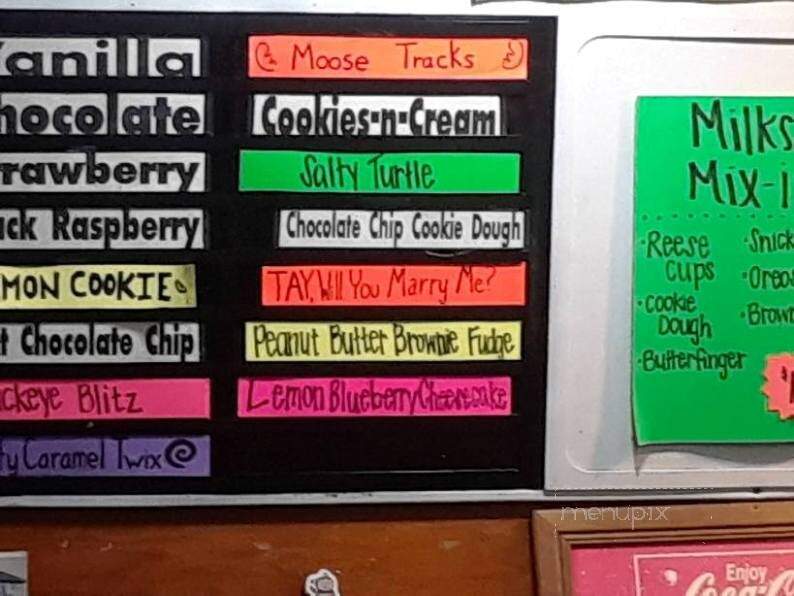 anilla
hocolate
rawberry
ck Raspberry
MON COOKIE
t Chocolate Chip
ckeye Blitz
ty Caramel Twix
Moose Tracks
Cookies-n-Cream
Salty Turtle
Chocolate Chip Cookie Dough
TAY, Will You Marry Me?
Peanut Butter Brownie Fudge
Lemon Blueberry Cheesecake
Milks
Mix-i
·Reese
Cups
·Cookie
Dough
·Butterfinger
·Snick
·Oreo
·Brown
menupix
Enjoy
Coca-Co